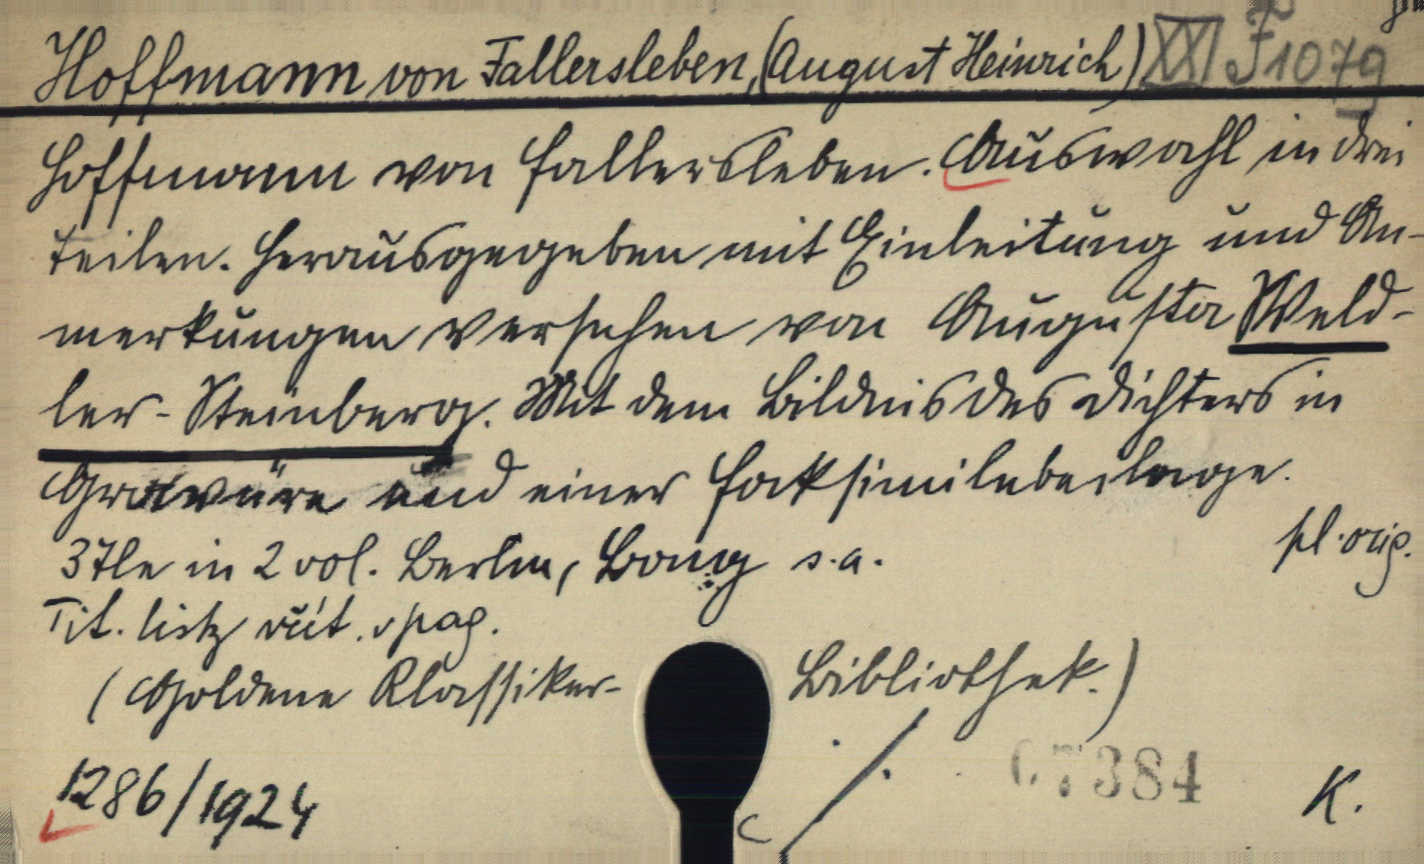 Hoffmann von Fallersleben, (August Heinrich) XXI F 1079
Hoffmann von Fallersleben. Auswahl in drei
Teilen. Herausgegeben mit Einleitung und An-
merkungen versehen von Augusta Weld-
ler-Steinberg. Mit dem Bildnis des Dichters in
Gravüre und einer Faksimilebeilage.
3 Tle in 2 vol. Berlin, Bong s.a.
pl. orig.
Tit.
(Goldene Klassiker-Bibliothek.)
67384
1286/1924
K.